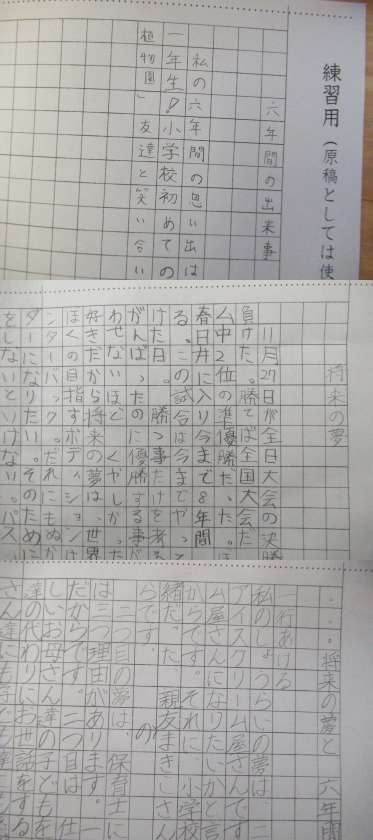 練習用（原稿としては使
六年間の出来事
私の六年間の思い出は
一年生!小学校初めての
植物園」友達と笑い合い
将来の夢
11月27日が全日大会の決勝
負けた。勝てば全国大会だ
ム中2位の準優勝だった。ほ
春日井に入り今まで8年間
る。この試合は今までやっ
けた日。勝つ事だけを考え
がんばったのに優勝する事
わせないほどくやしかった
好きだから将来の夢は、世界
ぼくの目指すポディションは
ンターバックだ。それにもぬか
ダーになりたい。そのために
をしないといけない。パス
・・・将来の夢と 六年間
一行あける
私のしょうらいの夢は、二
アイスクリーム屋さんです
ム屋さんに
親友まきこさん
らです。
二つ目の夢は、保育士に
は二つ理由があります。
だからです。二つ目は、仕
達のお母さん達の子どもを
さんの代わりにお世話